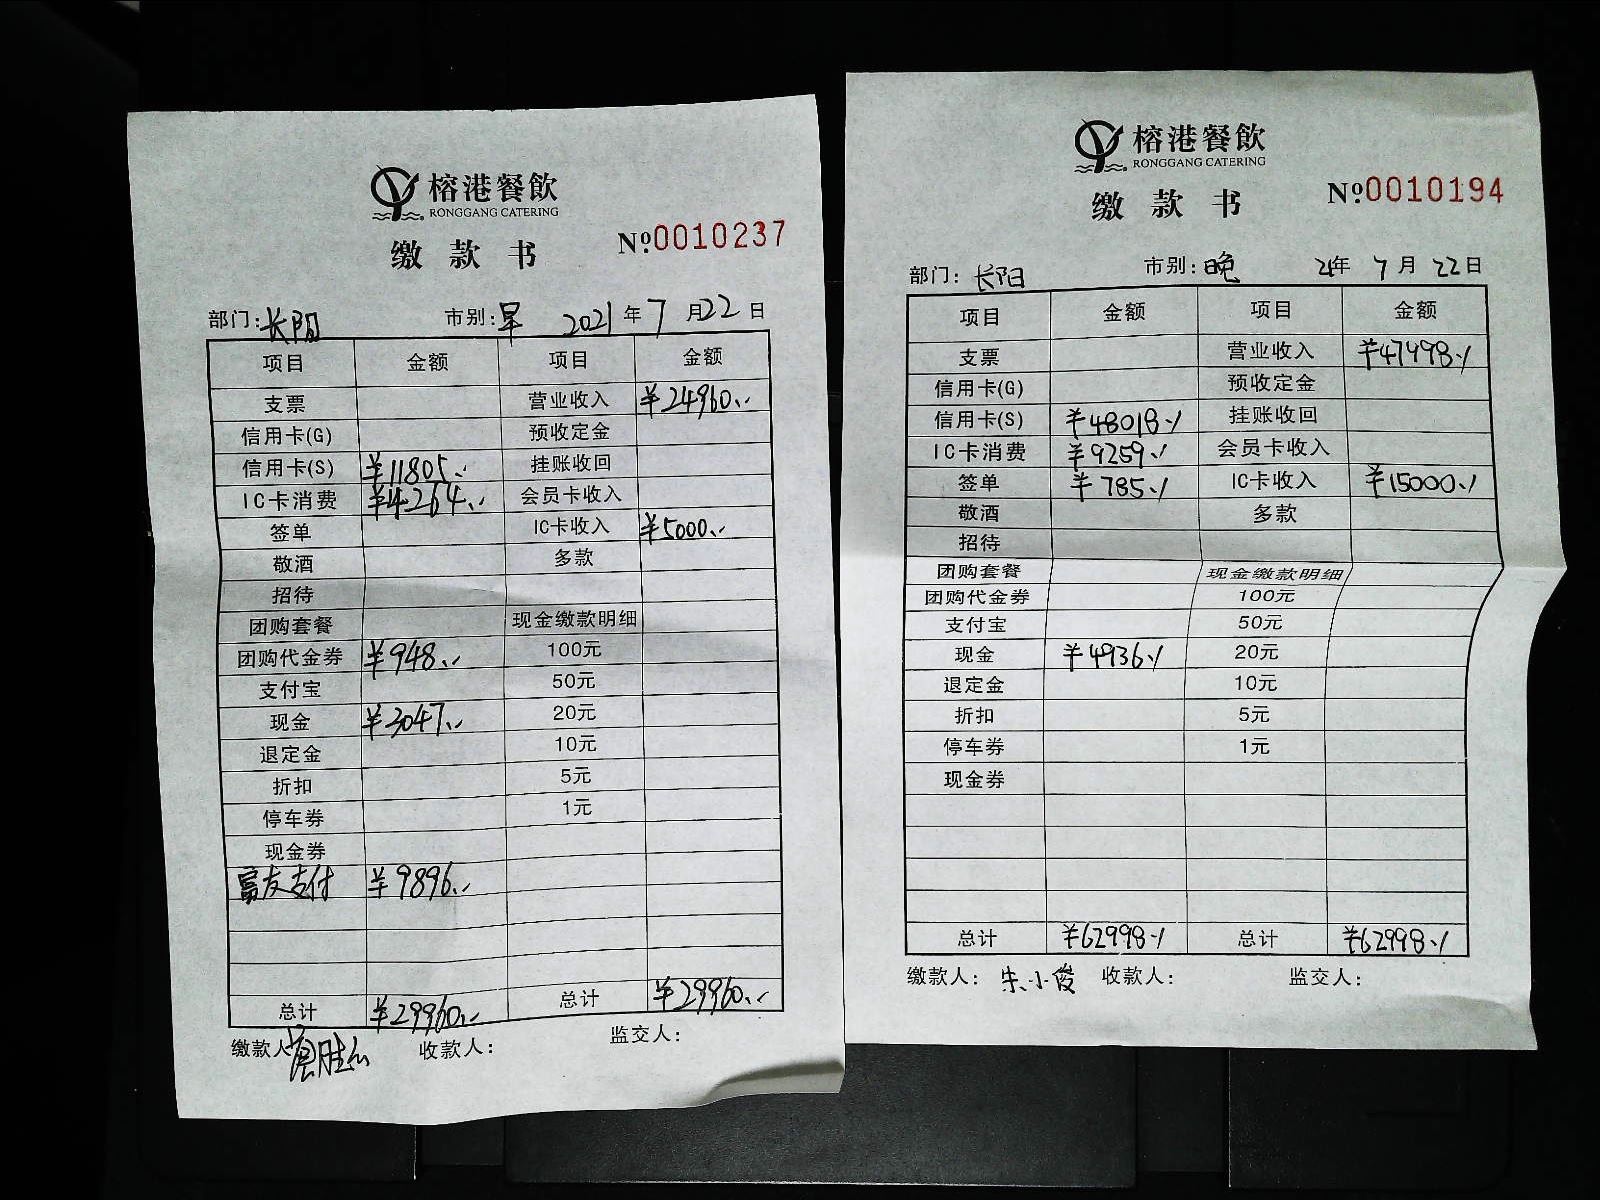 榕港餐飲
RONGGANG CATERING
缴款书
№0010237
部门:长阳 市别:早 2021年7月22日
项目 金额 项目 金额
支票 营业收入 ¥24960.
信用卡(G) 预收定金
信用卡(S) ¥11805. 挂账收回
IC卡消费 ¥4264. 会员卡收入
签单 IC卡收入 ¥5000.
敬酒 多款
招待
团购套餐 现金缴款明细
团购代金券 ¥948. 100元
支付宝 50元
现金 ¥3047. 20元
退定金 10元
折扣 5元
停车券 1元
现金券
富友支付 ¥9896.
总计 ¥29960. 总计 ¥29960.
缴款人 收款人: 监交人:
榕港餐飲
RONGGANG CATERING
缴款书
№0010194
部门:长阳 市别:晚 21年7月22日
项目 金额 项目 金额
支票 营业收入 ¥47998.
信用卡(G) 预收定金
信用卡(S) ¥48018. 挂账收回
IC卡消费 ¥9259. 会员卡收入
签单 ¥785. IC卡收入 ¥15000.
敬酒 多款
招待
团购套餐 现金缴款明细
团购代金券 100元
支付宝 50元
现金 ¥4936. 20元
退定金 10元
折扣 5元
停车券 1元
现金券
总计 ¥62998. 总计 ¥62998.
缴款人:朱小俊 收款人: 监交人: